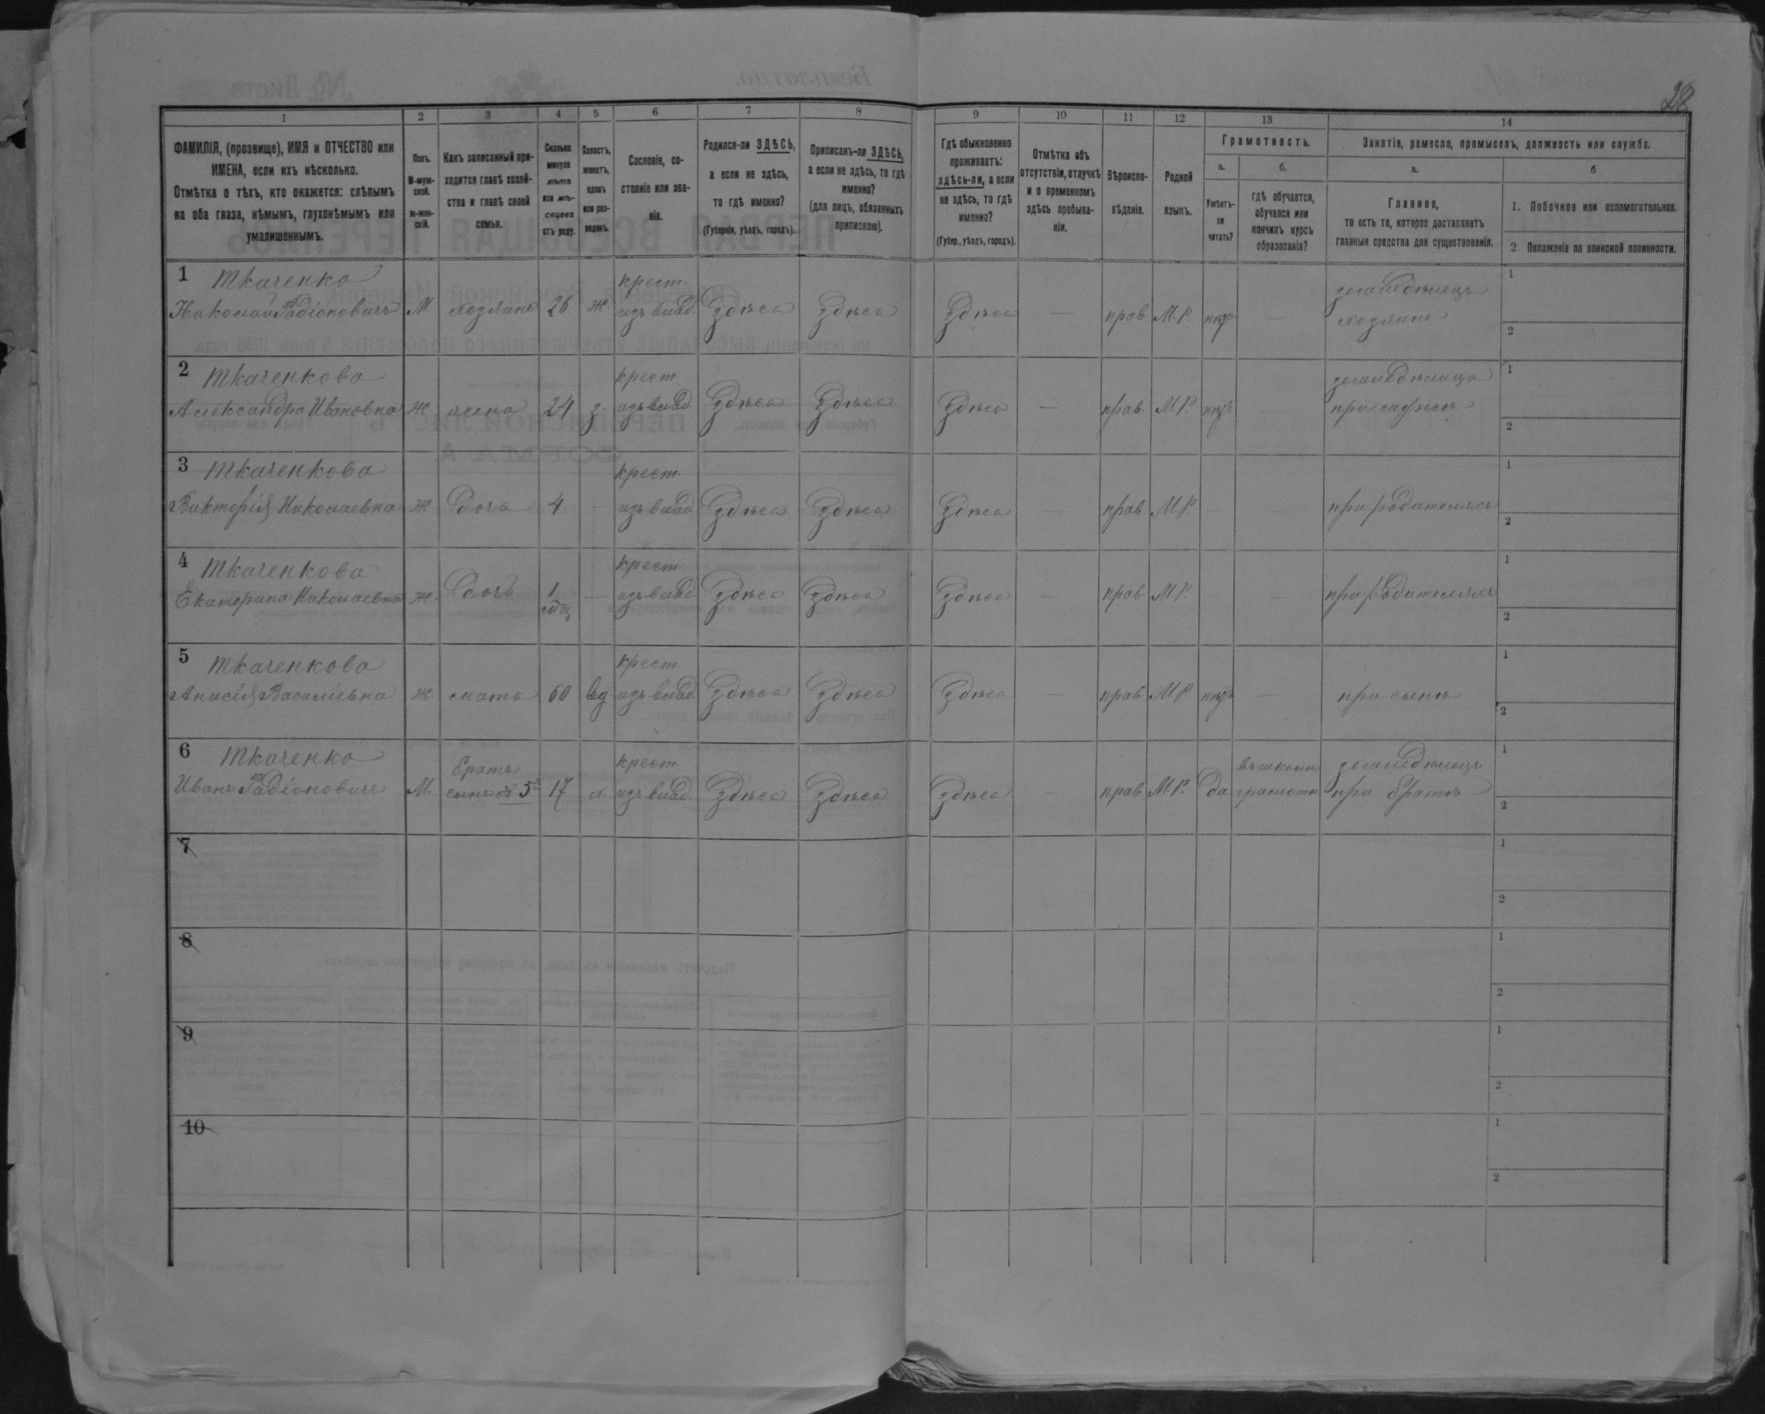 28
1 2 3 4 5 6 7 8 9 10 11 12 13 14
ФАМИЛІЯ, (прозвище), ИМЯ и ОТЧЕСТВО или
ИМЕНА, если ихъ нѣсколько.
Отмѣтка о тѣхъ, кто окажется: слѣпымъ
на оба глаза, нѣмымъ, глухонѣмымъ или
умалишеннымъ.
Полъ.
М-муж-
ской.
ж-жен-
скій.
Какъ записанный при-
ходится главѣ хозяй-
ства и главѣ своей
семьи.
Сколько
минуло
лѣтъ
или мѣ-
сяцевъ
отъ роду.
Холостъ,
женатъ,
вдовъ
или раз-
веденъ.
Сословіе, со-
стояніе или зва-
ніе.
Родился-ли ЗДѢСЬ,
а если не здѣсь,
то гдѣ именно?
(Губернія, уѣздъ, городъ).
Приписанъ-ли ЗДѢСЬ,
а если не здѣсь, то гдѣ
именно?
(для лицъ, обязанныхъ
припискою).
Гдѣ обыкновенно
проживаетъ:
здѣсь-ли, а если
не здѣсь, то гдѣ
именно?
(Губер., уѣздъ, городъ).
Отмѣтка объ
отсутствіи, отлучкѣ
и о временномъ
здѣсь пребыва-
ніи.
Вѣроиспо-
вѣданіе.
Родной
языкъ.
Грамотность.
а. б.
Умѣетъ-
ли
читать?
гдѣ обучается,
обучался или
кончилъ курсъ
образованія?
Занятіе, ремесло, промыселъ, должность или служба.
а. б
Главное,
то есть то, которое доставляетъ
главныя средства для существованія.
1. Побочное или вспомогательное.
2 Положеніе по воинской повинности.
1 Ткаченко крест. земледѣлецъ 1
Николай Радіоновичъ М хозяинъ 26 ж изъ влад. Здѣсь Здѣсь Здѣсь — прав М.Р. нѣтъ — хозяинъ 2
2 Ткаченкова крест земледѣлица 1
Александра Ивановна ж жена 24 з. изъ влад. Здѣсь Здѣсь Здѣсь — прав. М.Р. нѣтъ при мужѣ 2
3 Ткаченкова крест 1
Викторія Николаевна ж дочь 4 — изъ влад Здѣсь Здѣсь Здѣсь — прав М.Р. — — при родителяхъ 2
4 Ткаченкова крест 1
Екатерина Николаевна ж. дочь 1 — изъ влад Здѣсь Здѣсь Здѣсь — прав М.Р. — при родителяхъ 2
5 Ткаченкова крест 1
Василіевна ж мать 60 вд изъ влад. Здѣсь Здѣсь Здѣсь — прав М.Р. нѣтъ — при сынѣ 2
6 Ткаченко братъ крест. въ школѣ земледѣлецъ 1
Иванъ Радіоновичъ М. сынъ 5й 17 х изъ влад. Здѣсь Здѣсь Здѣсь — прав М.Р. да грамоты при братѣ 2
7 1
2
8 1
2
9 1
2
10 1
2